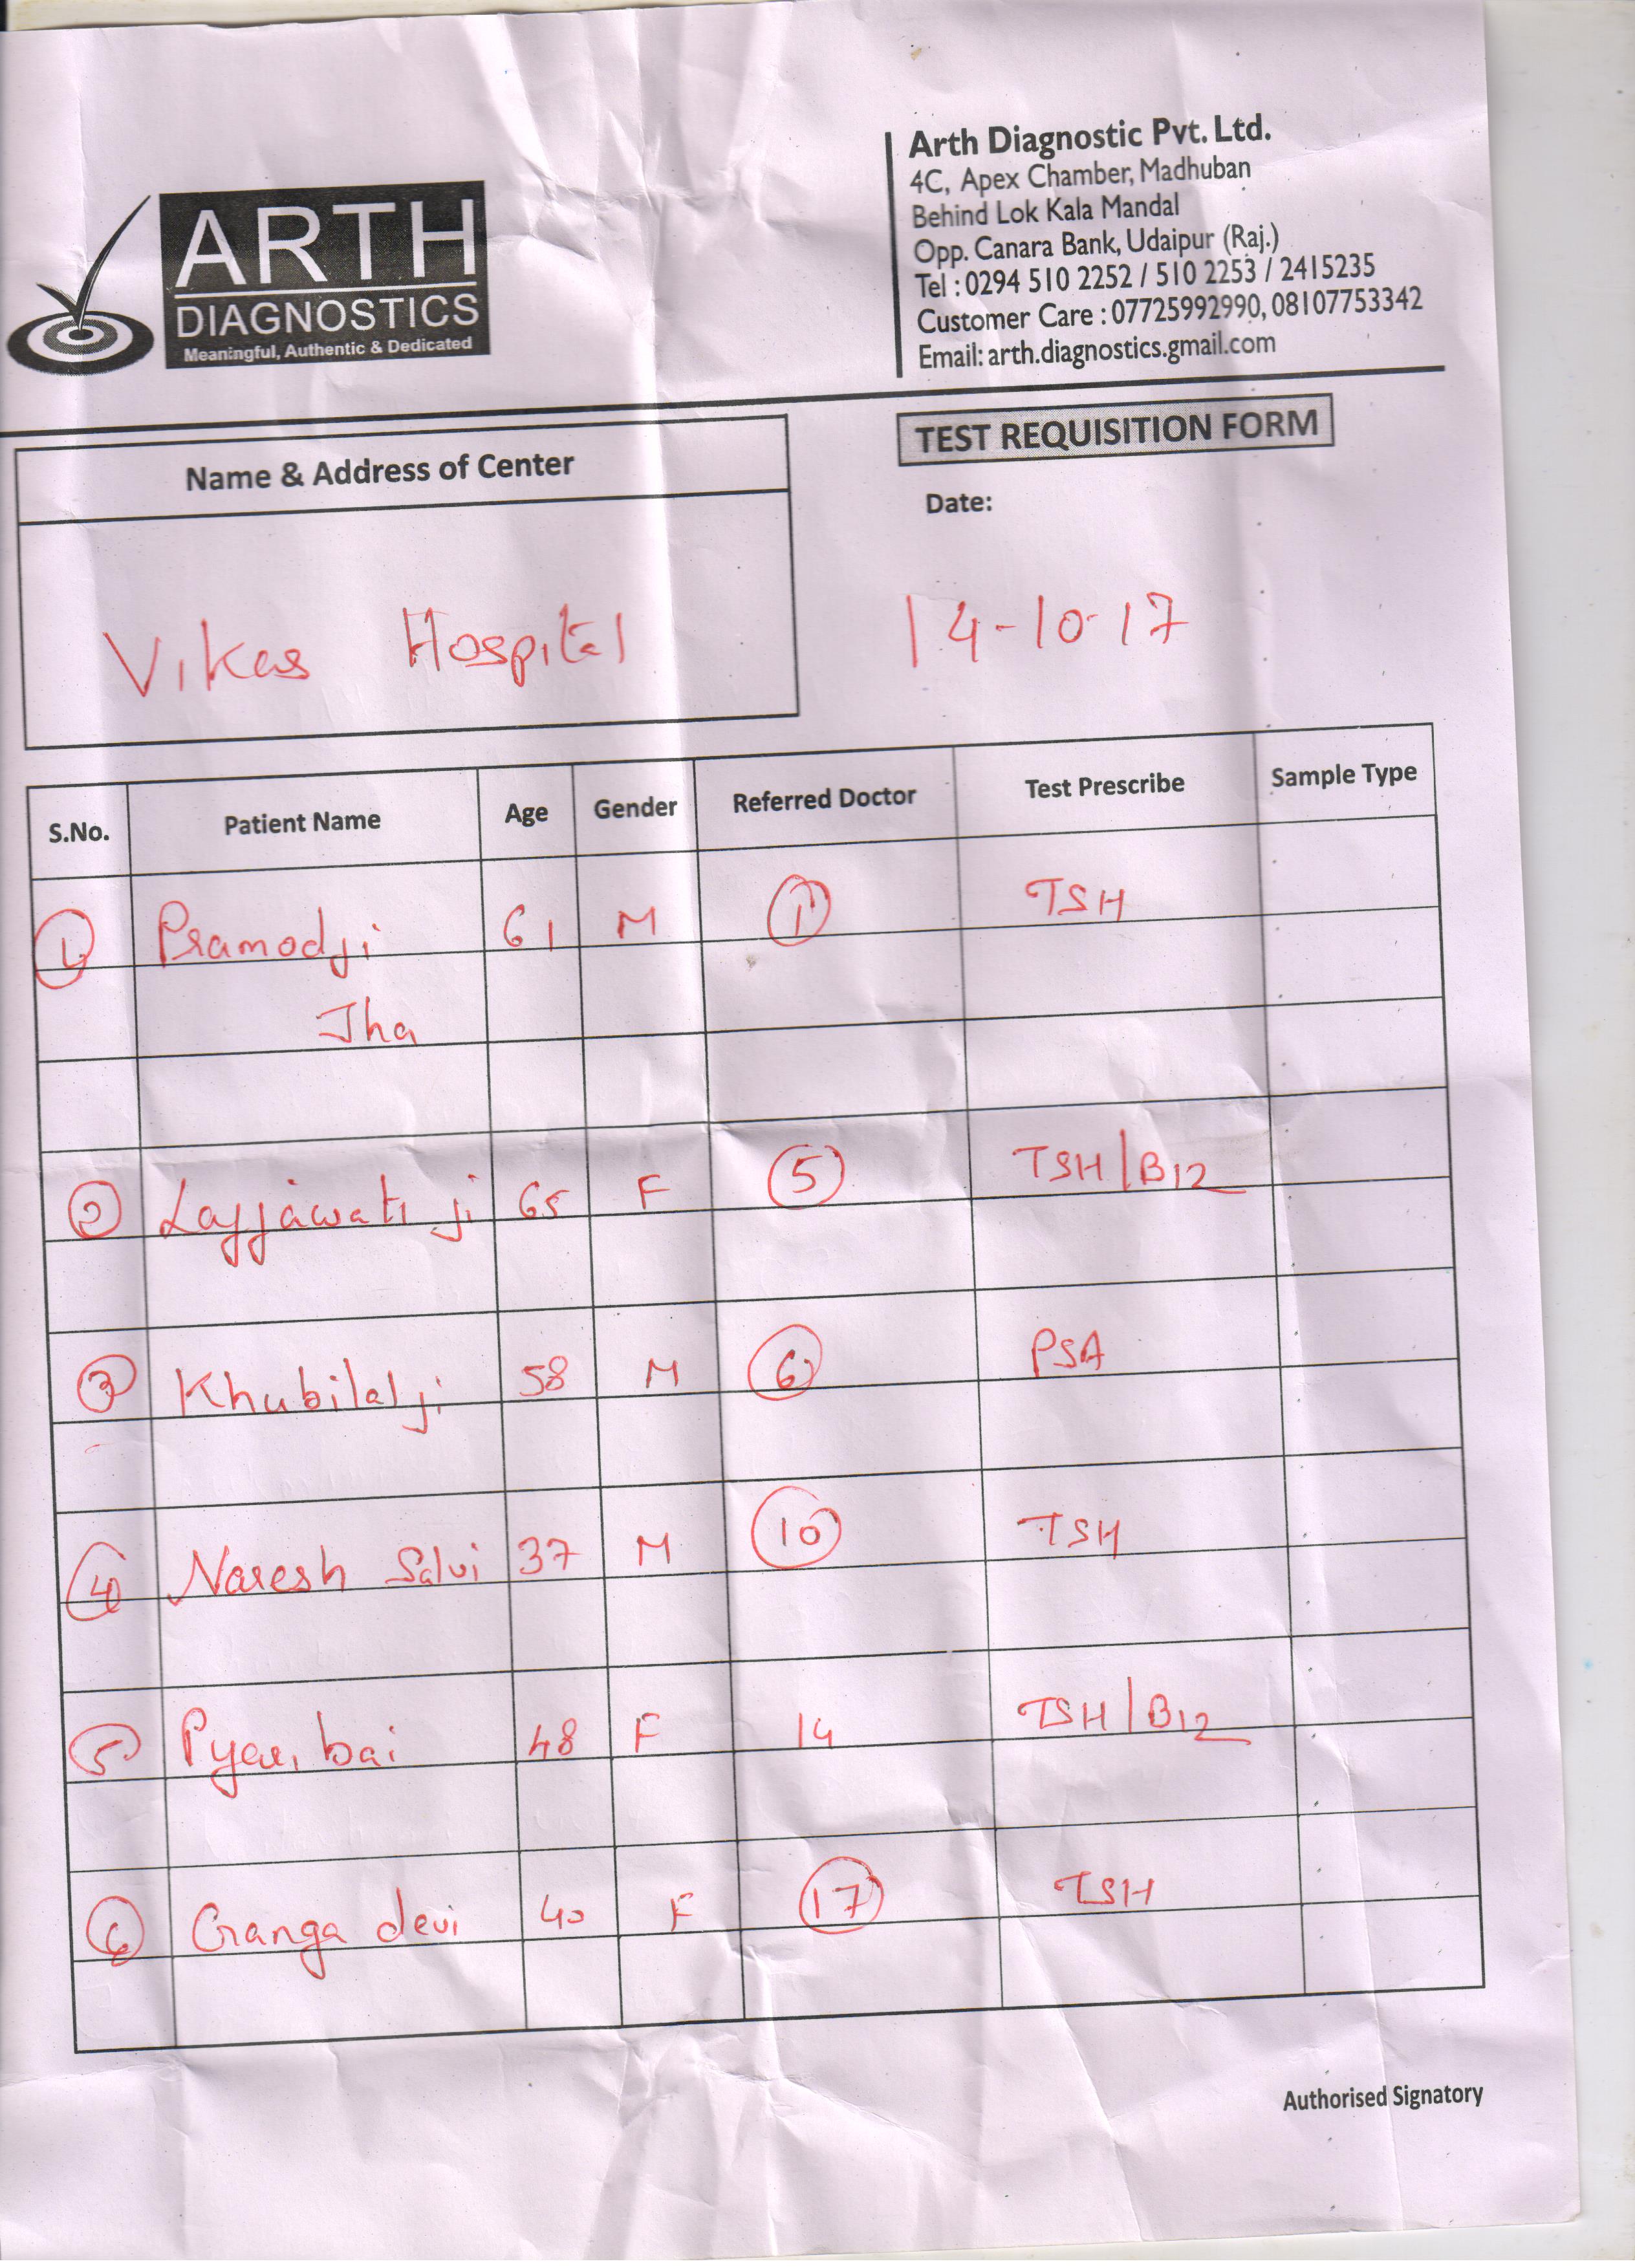 ARTH
DIAGNOSTICS
Meaningful, Authentic & Dedicated
Arth Diagnostic Pvt. Ltd.
4C, Apex Chamber, Madhuban
Behind Lok Kala Mandal
Opp. Canara Bank, Udaipur (Raj.)
Tel : 0294 510 2252 / 510 2253 / 2415235
Customer Care : 07725992990, 08107753342
Email: arth.diagnostics.gmail.com
Name & Address of Center
Vikas Hospital
TEST REQUISITION FORM
Date:
14-10-17
S.No. Patient Name Age Gender Referred Doctor Test Prescribe Sample Type
1 Pramodji 61 M 1 TSH
Jha
2 Lajjawati ji 65 F 5 TSH/B12
3 Khubilal ji 58 M 6 PSA
4 Naresh Salvi 37 M 10 TSH
5 Pyari bai 48 F 14 TSH/B12
6 Ganga devi 40 F 17 TSH
Authorised Signatory